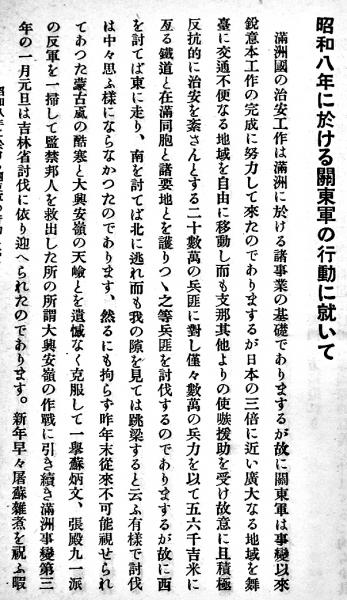 昭和八年に於ける關東軍の行動に就いて
滿洲國の治安工作は滿洲に於ける諸事業の基礎でありまするが故に關東軍は事變以來
銳意本工作の完成に努力して來たのでありまするが日本の三倍に近い廣大なる地域を舞
臺に交通不便なる地域を自由に移動し而も支那其他よりの使嗾援助を受け故意に且積極
反抗的に治安を紊さんとする二十數萬の兵匪に對し僅々數萬の兵力を以て五六千吉米に
亙る鐵道と在滿同胞と諸要地とを護りつゝ之等兵匪を討伐するのでありまするが故に西
を討てば東に走り、南を討てば北に逃れ而も我の隙を見ては跳梁すると云ふ有樣で討伐
は中々思ふ樣にならなかつたのであります、然るにも拘らず昨年末從來不可能視せられ
てあつた蒙古嵐の酷寒と大興安嶺の天嶮とを遺憾なく克服して一擧蘇炳文、張殿九一派
の反軍を一掃して監禁邦人を救出した所の所謂大興安嶺の作戰に引き續き滿洲事變第三
年の一月元旦は吉林省討伐に依り迎へられたのであります。新年早々屠蘇雜煮を祝ふ暇